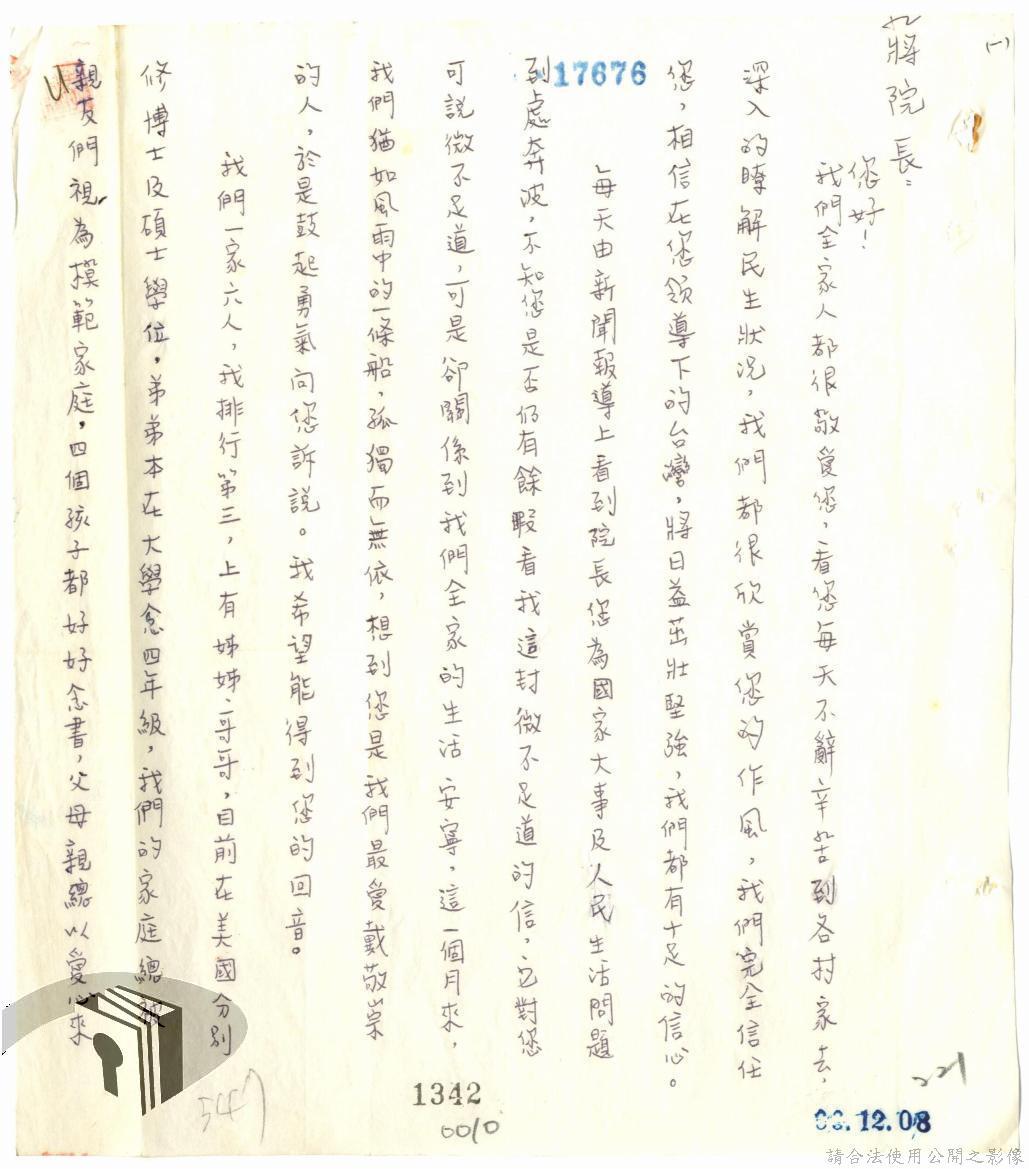 (一)
蔣院長：
您好！
我們全家人都很敬愛您，看您每天不辭辛苦到各村家去，
深入的瞭解民生狀況，我們都很欣賞您的作風，我們完全信任
您，相信在您領導下的台灣，將日益茁壯堅強，我們都有十足的信心。
每天由新聞報導上看到院長您為國家大事及人民生活問題
到處奔波，不知您是否仍有餘暇看我這封微不足道的信，它對您
可說微不足道，可是卻關係到我們全家的生活安寧，這一個月來，
我們猶如風雨中的一條船，孤獨而無依，想到您是我們最愛戴敬崇
的人，於是鼓起勇氣向您訴說。我希望能得到您的回音。
我們一家六人，我排行第三，上有姊姊、哥哥，目前在美國分別
修博士及碩士學位，弟弟本在大學念四年級，我們的家庭總被
親友們視為模範家庭，四個孩子都好好念書，父母親總以愛心來
17676
1342
0010
547
221
.12.08
請合法使用公開之影像